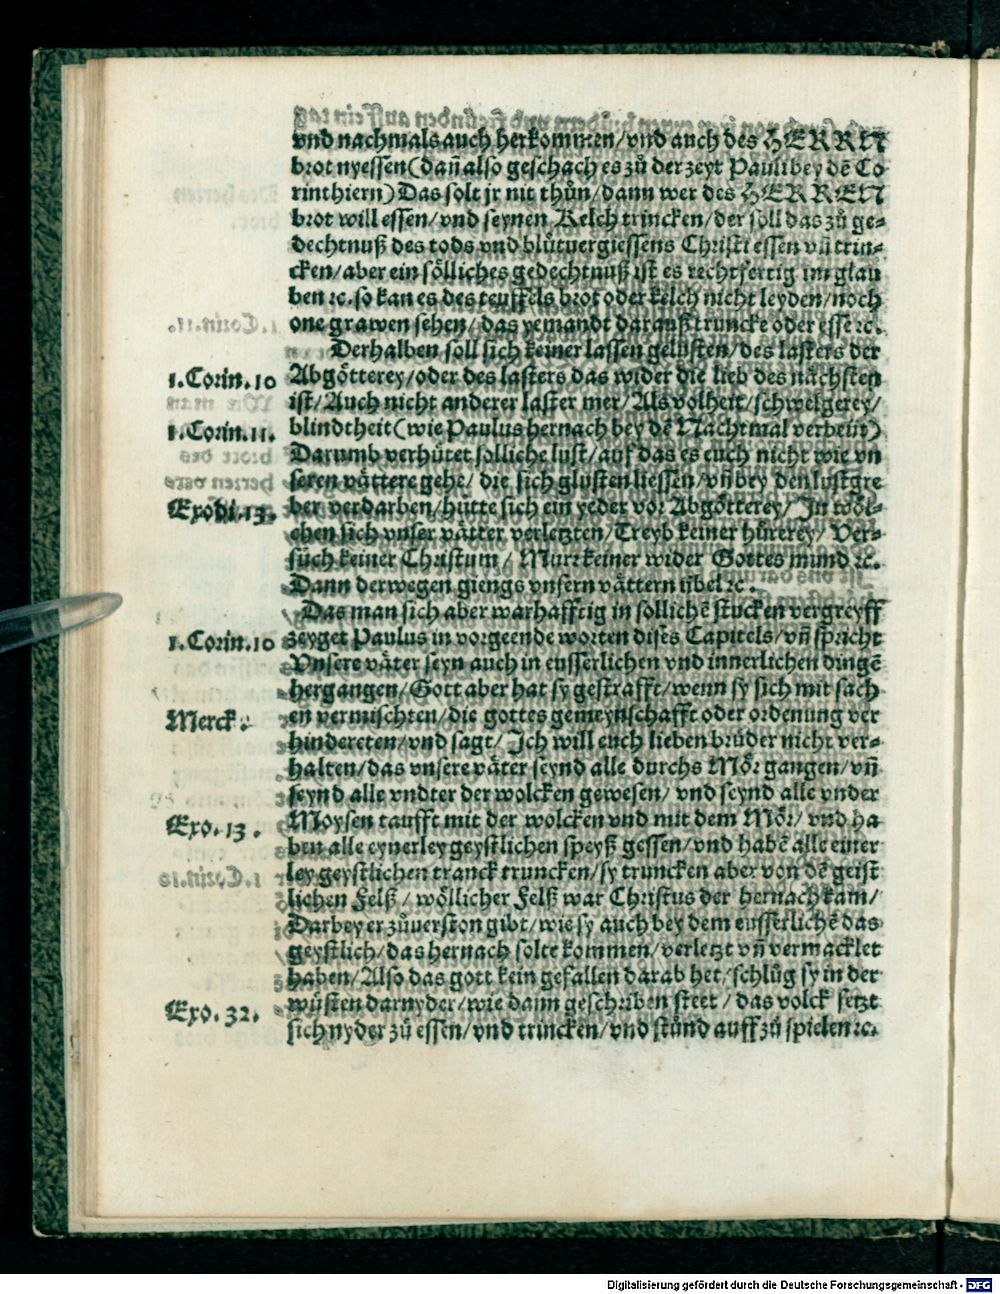 vnd nachmals auch herkommen/vnd auch des HERRN
brot nyessen(dañ also geschach es zů der zeyt Pauli bey dē Co
rinthiern)Das solt jr nit thůn/dann wer des HERREN
brot will essen/vnd seynen Kelch trincken/der soll das zů ge-
dechtnuß des tods vnd blůtuergiessens Christi essen vñ trin-
cken/aber ein sölliches gedechtnuß ist es rechtfertig im glau
ben ꝛc. so kan es des teuffels brot oder kelch nicht leyden/noch
one grawen sehen/das yemandt darauß truncke oder esse ꝛc.
Derhalben soll sich keiner lassen gelüsten/des lasters der
1.Corin.10 Abgötterey/oder des lasters das wider die lieb des nächsten
ist/Auch nicht anderer laster mer/Als volheit/schwelgerey/
1.Corin.11. blindtheit(wie Paulus hernach bey dē Nachtmal verbeut)
Darumb verhütet solliche lust/auf das es euch nicht wie vn
seren vättere gehe/die sich glusten liessen/vñ bey den lustgre
Exodi.13. ber verdarben/hütte sich ein yeder vor Abgötterey/In wöl-
chen sich vnser vätter verletzten/Treyb keiner hůrerey/Ver-
sůch keiner Christum/Murr keiner wider Gottes mund ꝛc.
Dann derwegen giengs vnsern vättern übel ꝛc.
Das man sich aber warhafftig in sollichē stucken vergreyff
1.Corin.10 zeyget Paulus in vorgeende worten dises Capitels/vñ spricht
Vnsere väter seyn auch in eusserlichen vnd innerlichen dingē
hergangen/Gott aber hat sy gestrafft/wenn sy sich mit sach
Merck. en vermischten/die gottes gemeynschafft oder ordenung ver
hindereten/vnd sagt/Ich will euch lieben brüder nicht ver-
halten/das vnsere väter seynd alle durchs Mör gangen/vñ
seynd alle vndter der wolcken gewesen/vnd seynd alle vnder
Exo.13. Moysen taufft mit der wolcken vnd mit dem Mör/vnd ha
ben alle eynerley geystlichen speyß gessen/vnd habē alle einer
ley geystlichen tranck truncken/sy truncken aber von dē geist
lichen Felß/wöllicher Felß war Christus der hernach kam/
Darbey er zůuerston gibt/wie sy auch bey dem eusserlichē das
geystlich/das hernach solte kommen/verletzt vñ vermacklet
haben/Also das gott kein gefallen darab het/schlůg sy in der
Exo.32. wüsten darnyder/wie dann geschriben steet/das volck setzt
sich nyder zů essen/vnd trincken/vnd stůnd auff zů spielen ꝛc.
Digitalisierung gefördert durch die Deutsche Forschungsgemeinschaft - DFG